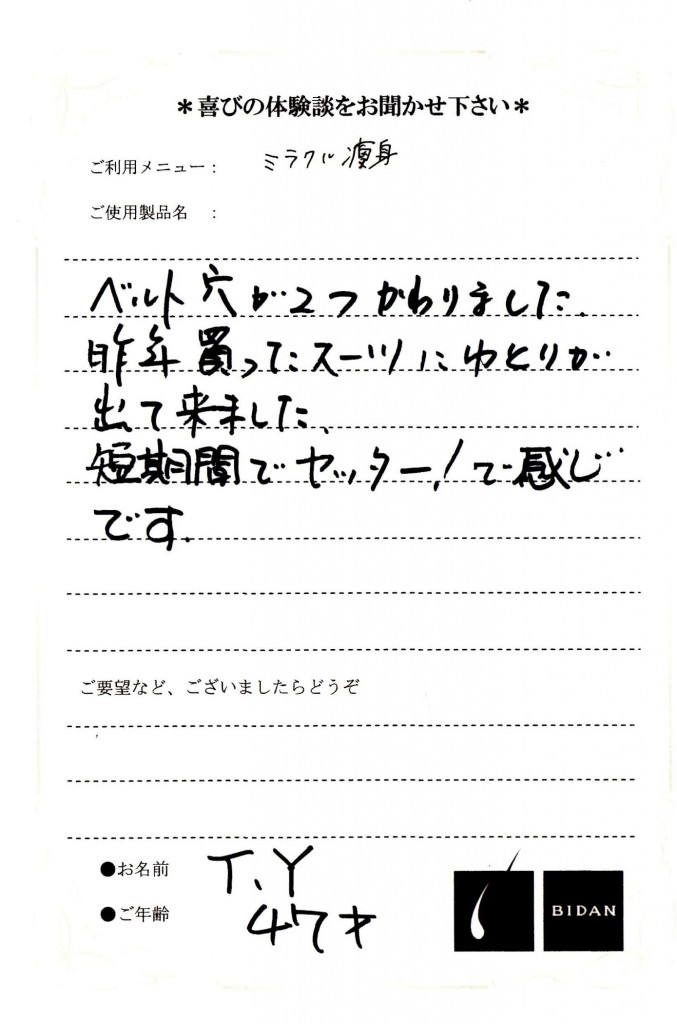 ＊喜びの体験談をお聞かせ下さい＊
ご利用メニュー： ミラクル痩身
ご使用製品名 ：
ベルト穴が2つかわりました.
昨年買ったスーツにゆとりが
出て来ました.
短期間でヤッター！て感じ
です.
ご要望など、ございましたらどうぞ
●お名前 T、Y
●ご年齢 47才
BIDAN